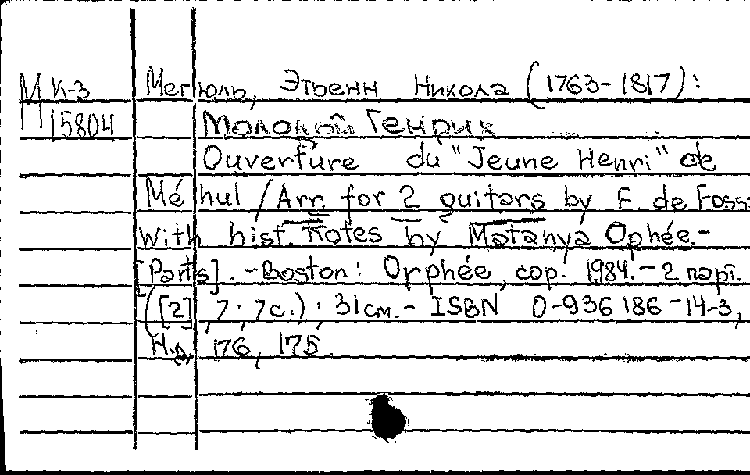 М К-3 Мегюль, Этьенн Никола (1763-1817):
П 15804 Молодой Генрих
Ouverture du "Jeune Henri" de
Méhul / Arr. for 2 guitars by F. de Fossa
With hist. notes by Matanya Ophée.-
[Parts]. - Boston: Orphée, cop. 1984.- 2 парт.
([2], 7; 7с.); 31см.- ISBN 0-936186-14-3,
Н.д. 176, 175.